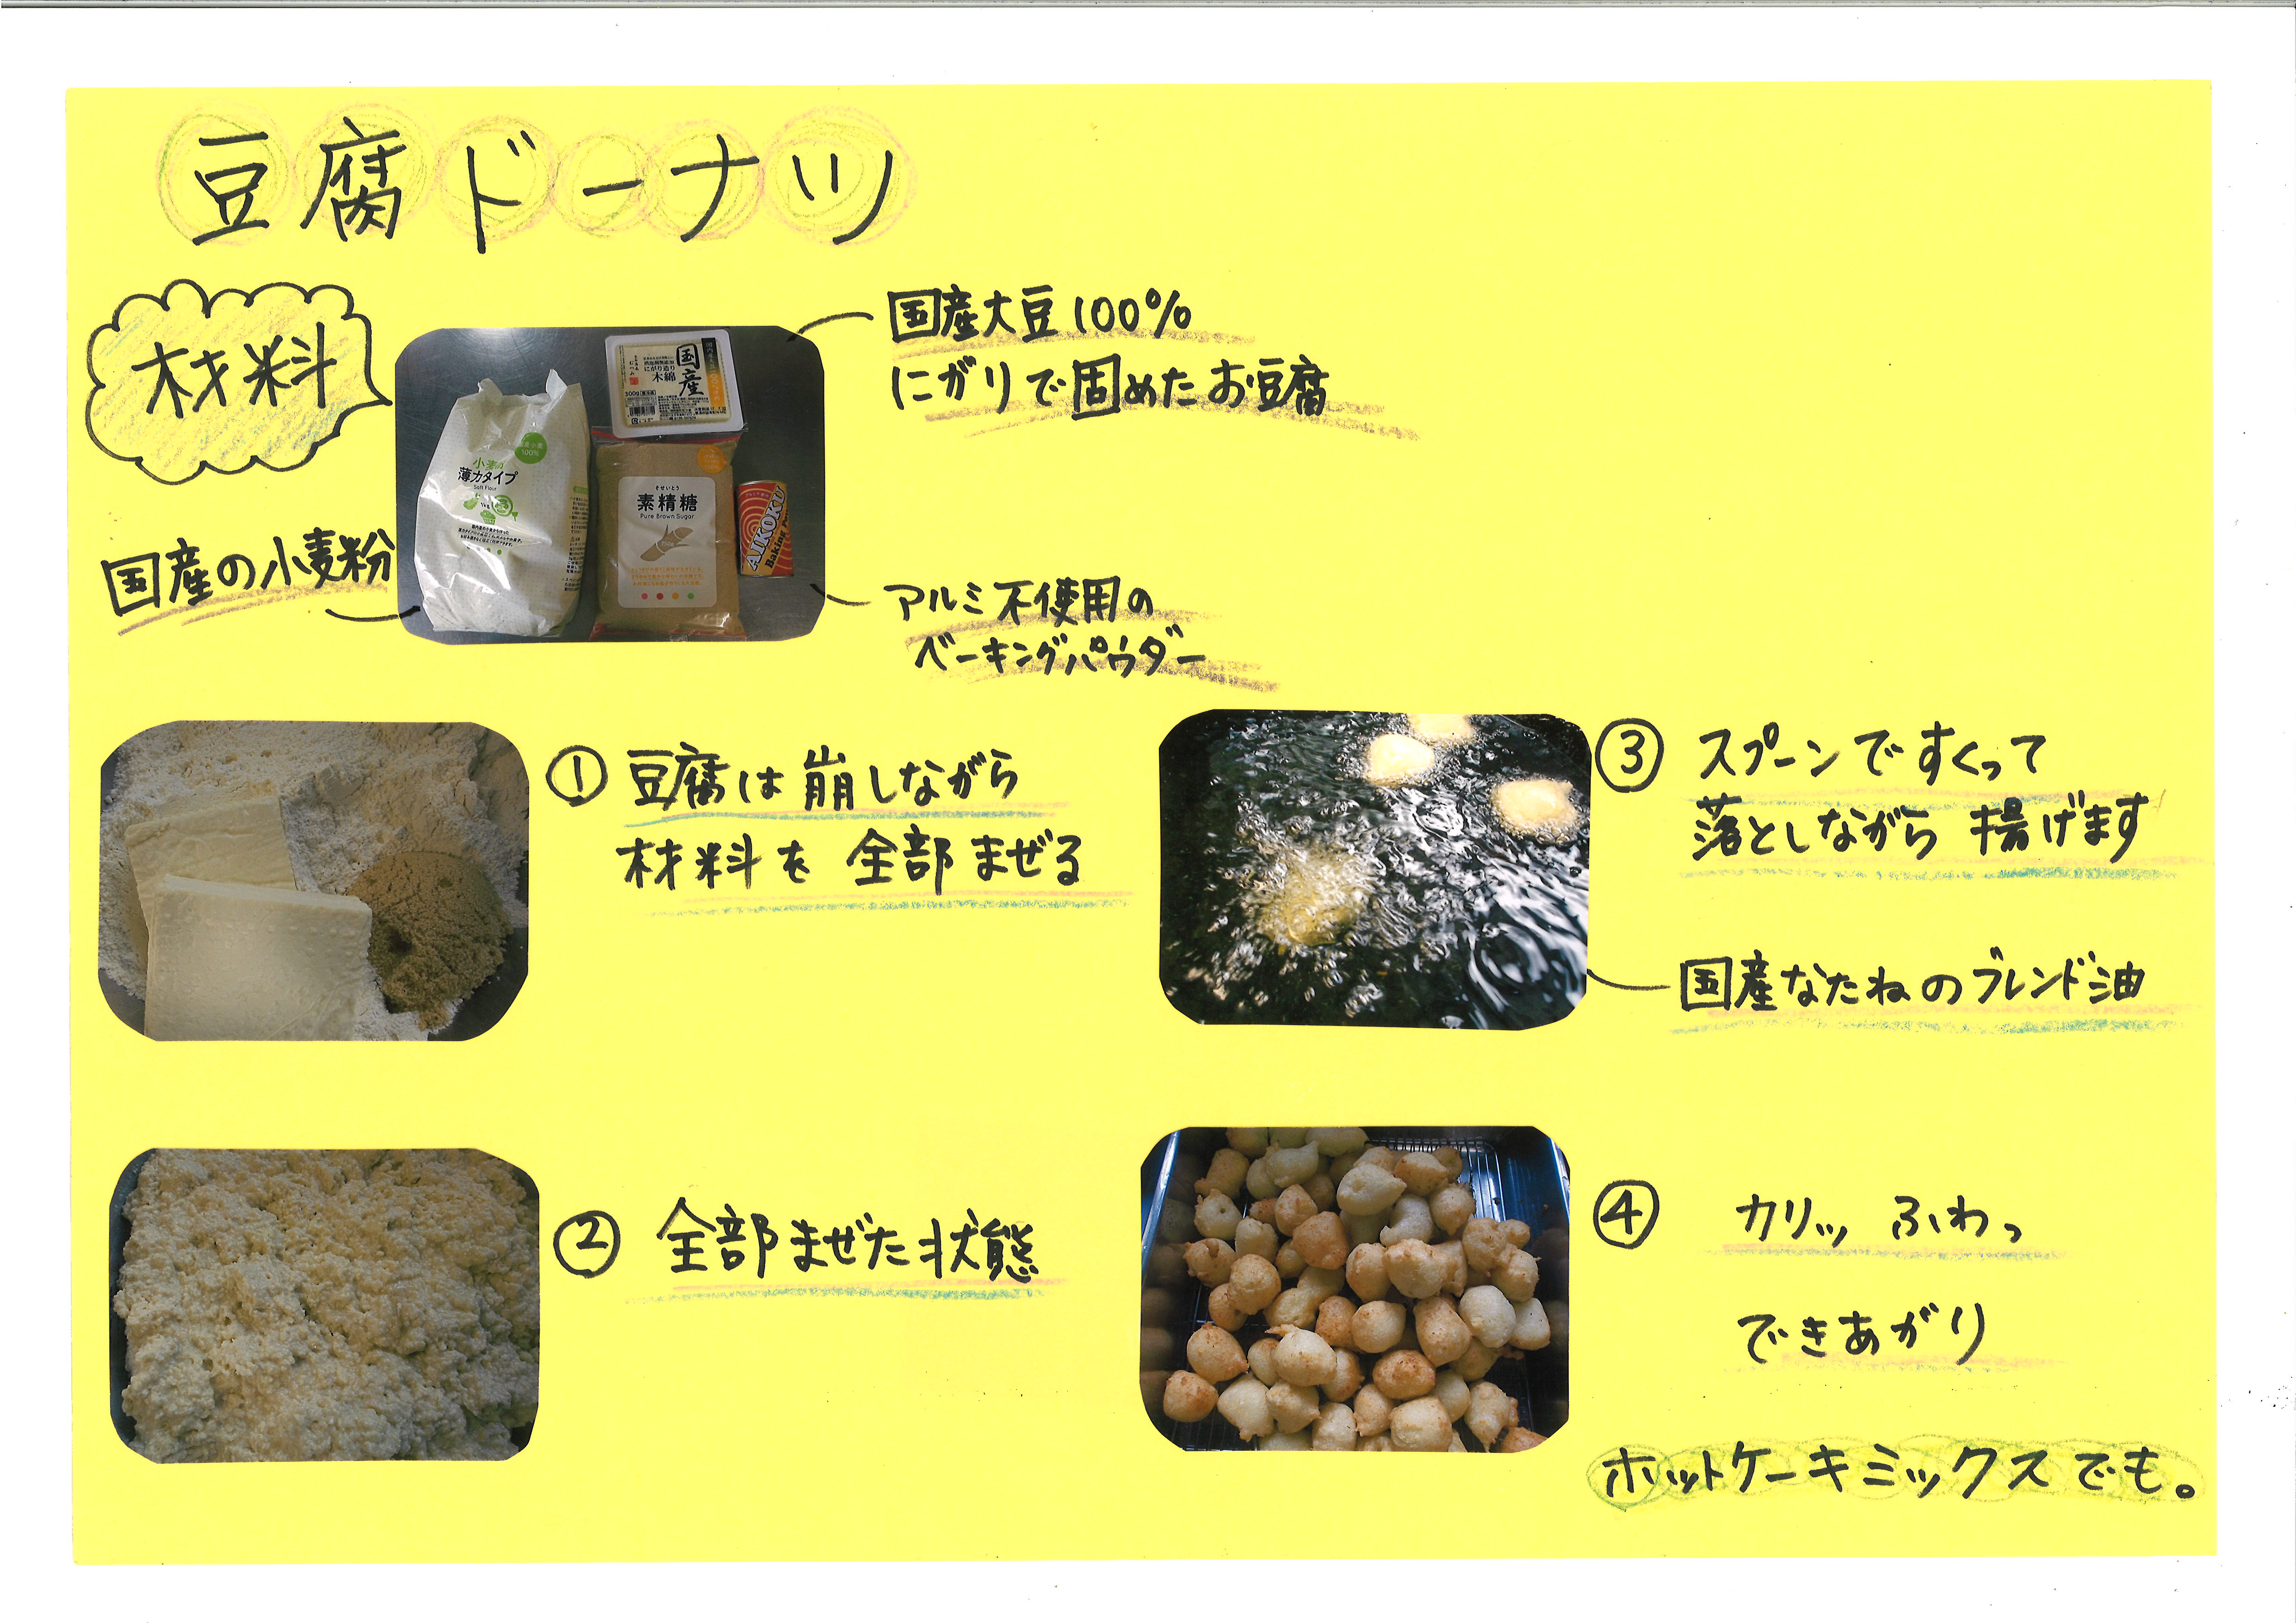 豆腐ドーナツ
材料
国産大豆100%
にがりで固めたお豆腐
国産
にがり造り
木綿
300g
小麦の
薄力タイプ
Soft Flour
100%
そせいとう
素精糖
Pure Brown Sugar
AIKOKU
Baking
国産の小麦粉
アルミ不使用の
ベーキングパウダー
① 豆腐は崩しながら
材料を全部まぜる
② 全部まぜた状態
③ スプーンですくって
落としながら揚げます
国産なたねのブレンド油
④ カリッ ふわっ
できあがり
ホットケーキミックスでも。